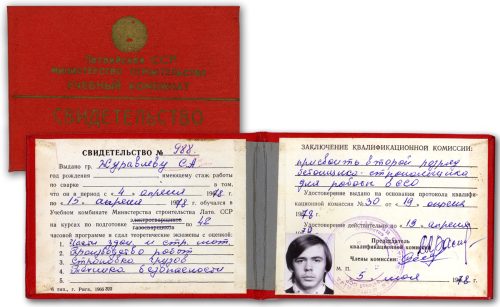 Латвийская ССР
МИНИСТЕРСТВО СТРОИТЕЛЬСТВА
УЧЕБНЫЙ КОМБИНАТ
СВИДЕТЕЛЬСТВО
СВИДЕТЕЛЬСТВО № 988.
Выдано гр. Журавлеву С.А.
год рождения имеющему стаж работы
по сварке в том,
что он в период с „4“ апреля 1978 г.
по „15“ апреля 1978 г. обучался в
Учебном комбинате Министерства строительства Латв. ССР
на курсах по подготовке электросварщиков по 42
газосварщиков
часовой программе и сдал теоретические экзамены с оценкой:
1. Части здан. и стр. мат.
2. Производство работ
3. Строповка грузов
4. Техника безопасности
5.
6 тип., г. Рига, 1966
ЗАКЛЮЧЕНИЕ КВАЛИФИКАЦИОННОЙ КОМИССИИ:
присвоить второй разряд
бетонщика-стропальщика
для работы в ССО
Удостоверение выдано на основании протокола квалифи-
кационной комиссии № 30 от „19“ апреля
1978 г.
Удостоверение действительно до „19“ апреля
Председатель
квалификационной комиссии
Члены комиссии:
М. П.
„5“ мая 1978 г.